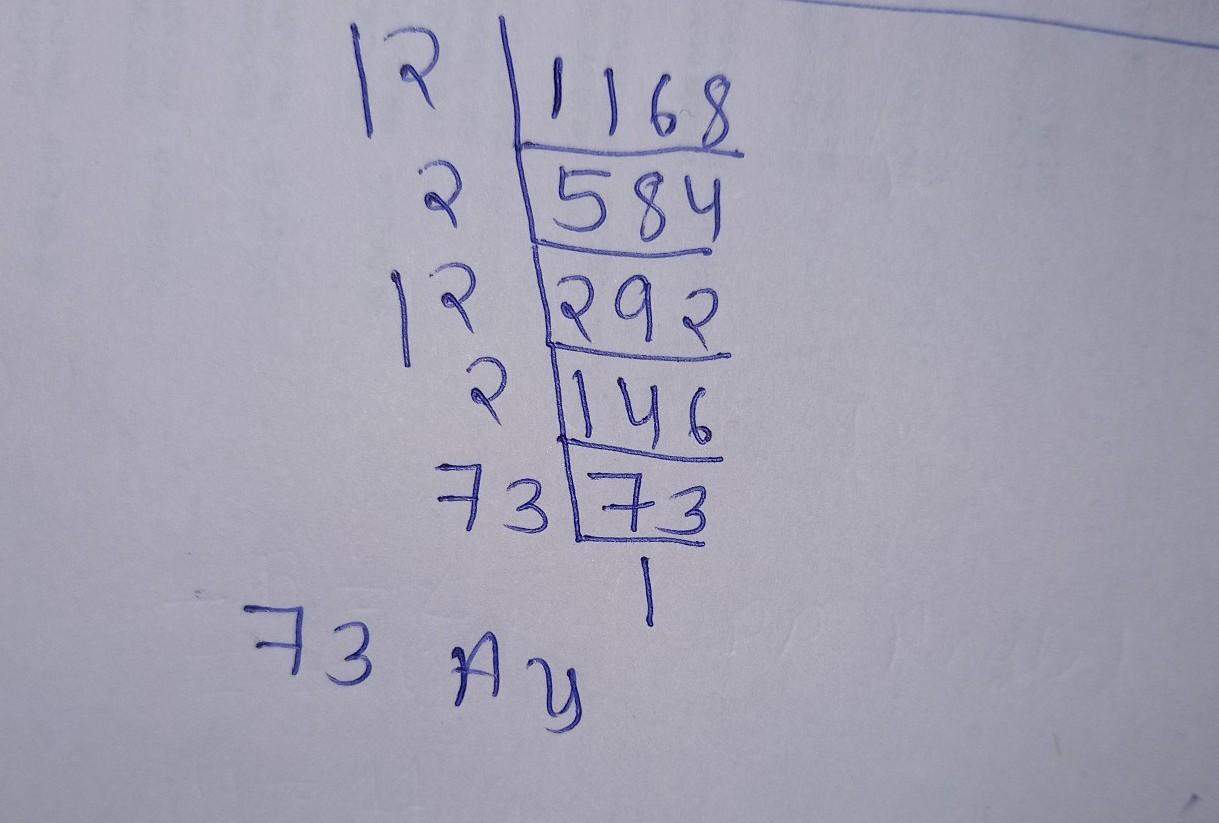 12 1168
2 584
12 292
2 146
73 73
1
73 Ay